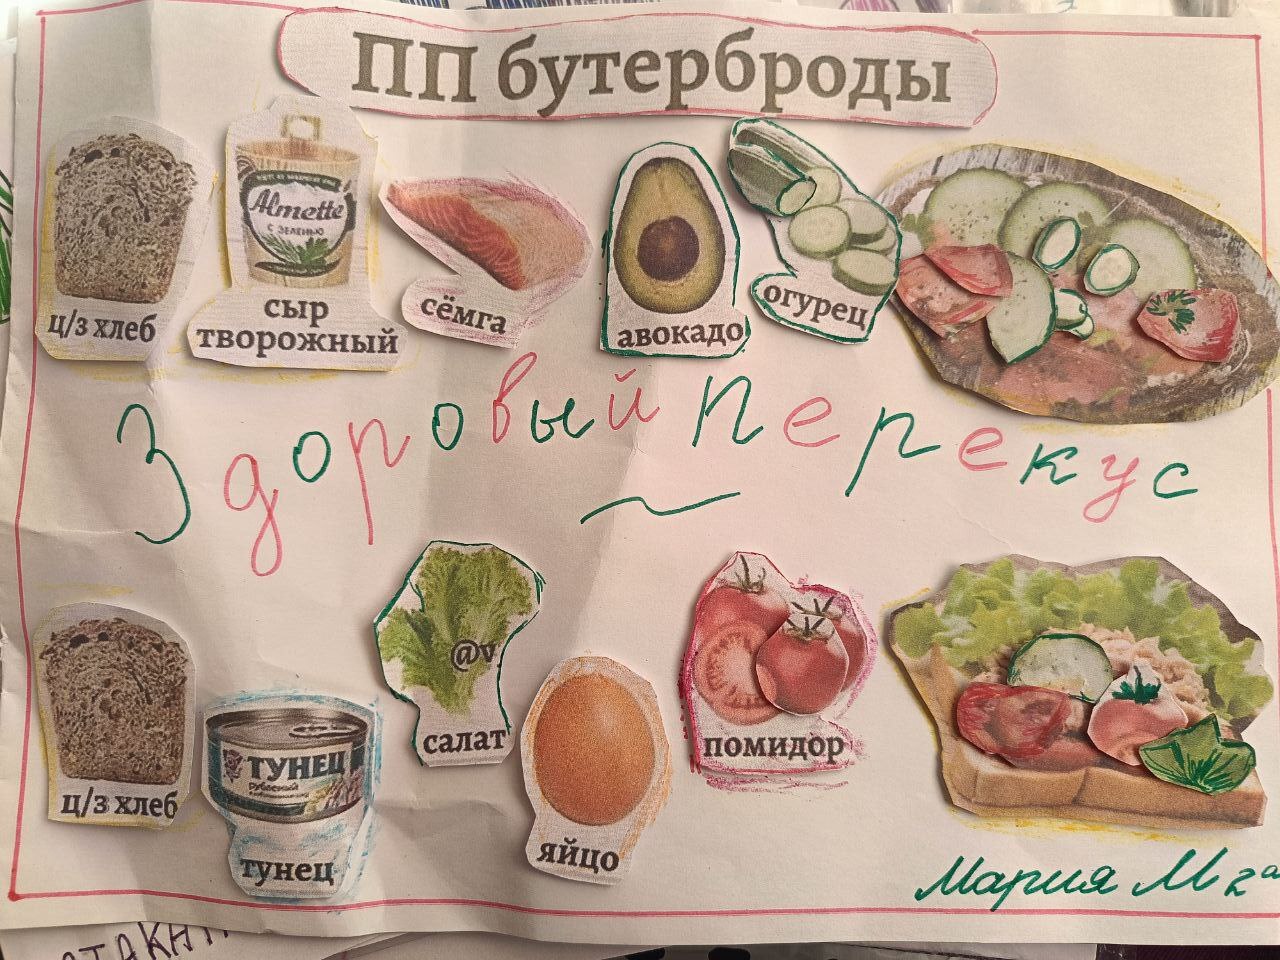 ПП бутерброды
Almette
с зеленью
ц/з хлеб
сыр
творожный
сёмга
авокадо
огурец
Здоровый перекус
ц/з хлеб
ТУНЕЦ
рубленый
тунец
@v
салат
яйцо
помидор
Мария М 2а